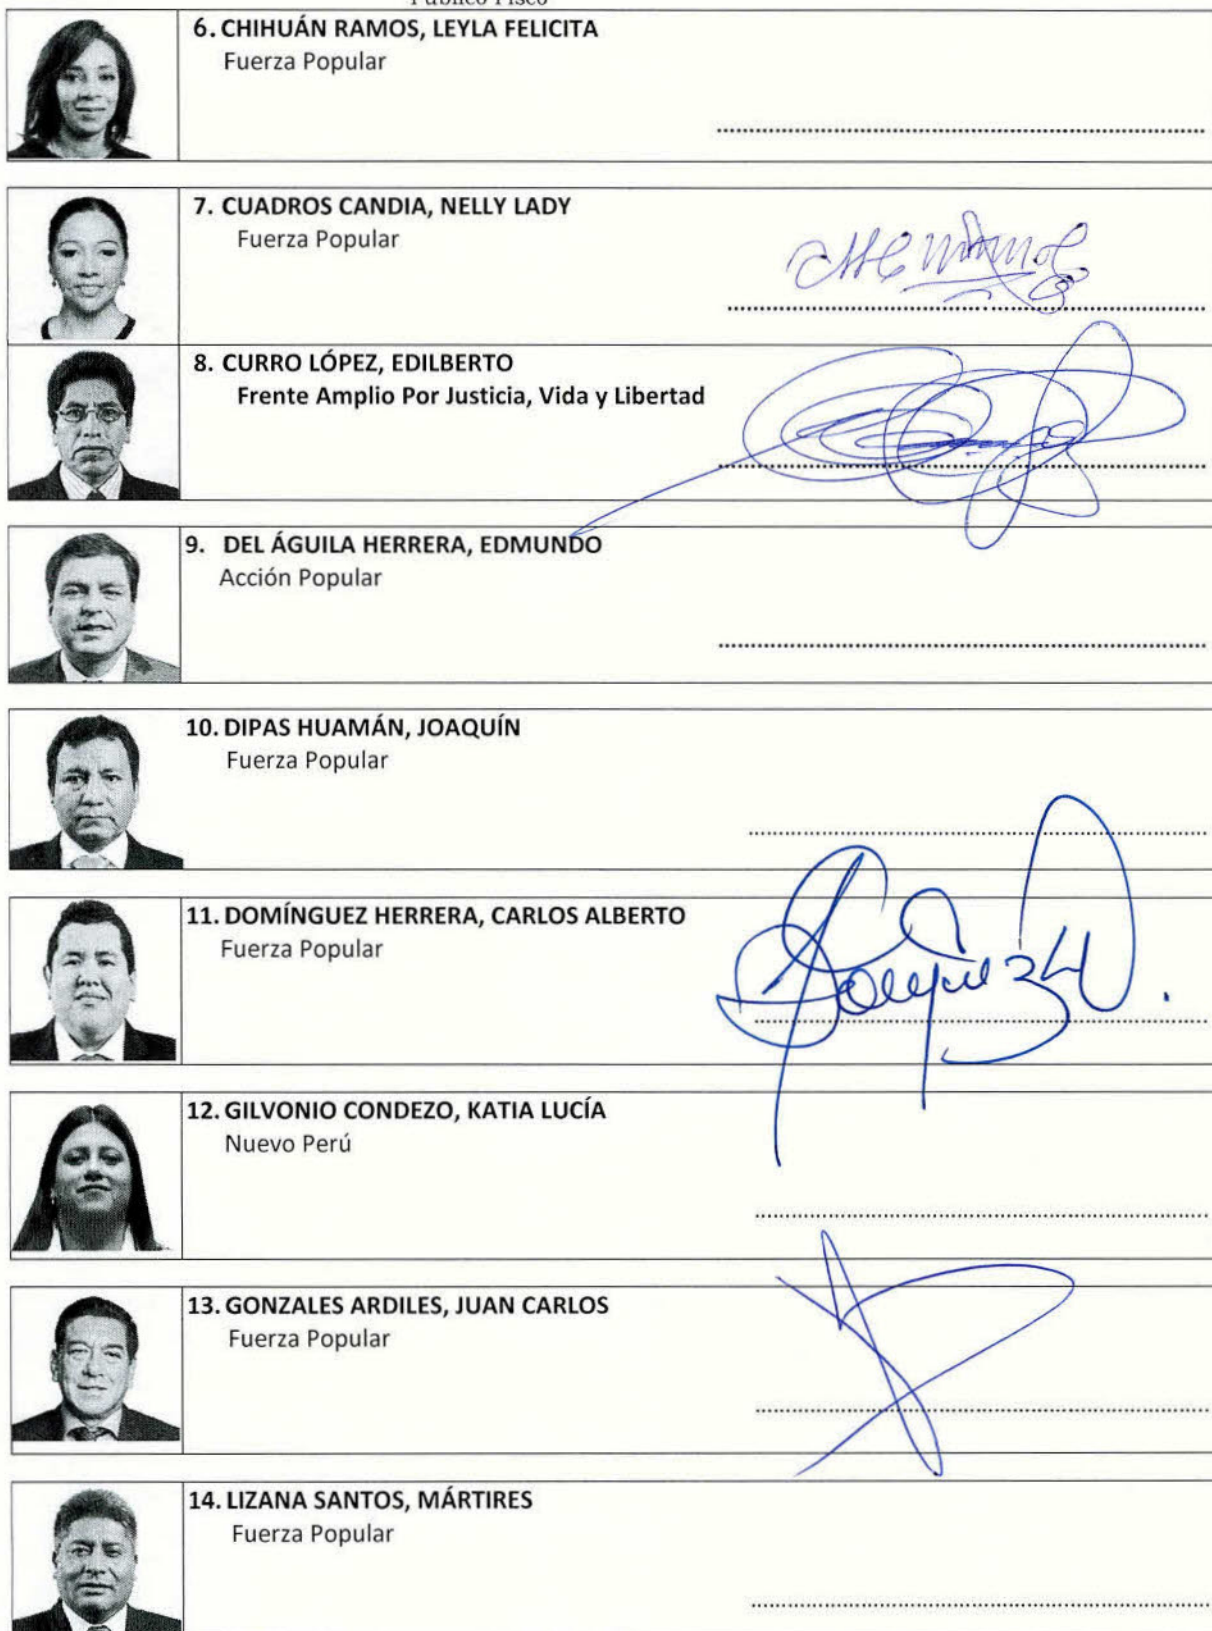 6. CHIHUÁN RAMOS, LEYLA FELICITA
Fuerza Popular
7. CUADROS CANDIA, NELLY LADY
Fuerza Popular
8. CURRO LÓPEZ, EDILBERTO
Frente Amplio Por Justicia, Vida y Libertad
9. DEL ÁGUILA HERRERA, EDMUNDO
Acción Popular
10. DIPAS HUAMÁN, JOAQUÍN
Fuerza Popular
11. DOMÍNGUEZ HERRERA, CARLOS ALBERTO
Fuerza Popular
12. GILVONIO CONDEZO, KATIA LUCÍA
Nuevo Perú
13. GONZALES ARDILES, JUAN CARLOS
Fuerza Popular
14. LIZANA SANTOS, MÁRTIRES
Fuerza Popular